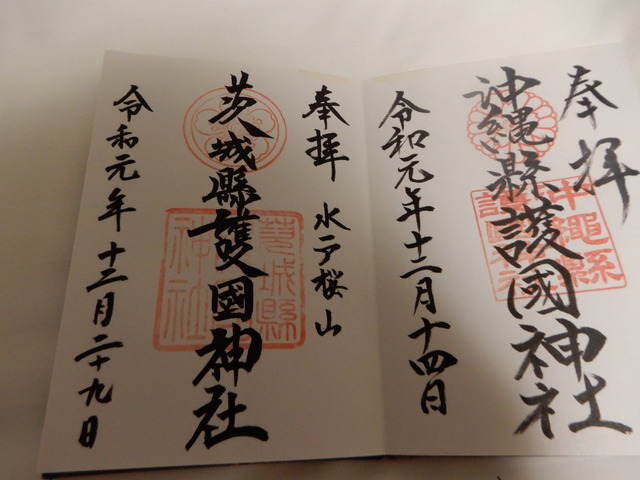 奉拝
沖縄縣護國神社
令和元年十二月十四日
奉拝 水戸桜山
茨城縣護國神社
令和元年十二月二十九日
茨城縣
神社